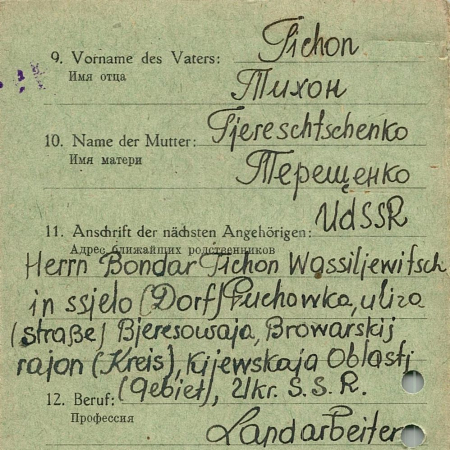 9. Vorname des Vaters: Tichon
Имя отца
Тихон
10. Name der Mutter: Tjereschtschenko
Имя матери
Терещенко
UdSSR
11. Anschrift der nächsten Angehörigen:
Адрес ближайших родственников
Herrn Bondar Tichon Wassiljewitsch
in ssjelo (Dorf) Puchowka, uliza
(straße) Bjeresowaja, Browarskij
rajon (Kreis), Kijewskaja Oblastj
(Gebiet), Ukr. S.S.R.
12. Beruf:
Профессия
Landarbeiter